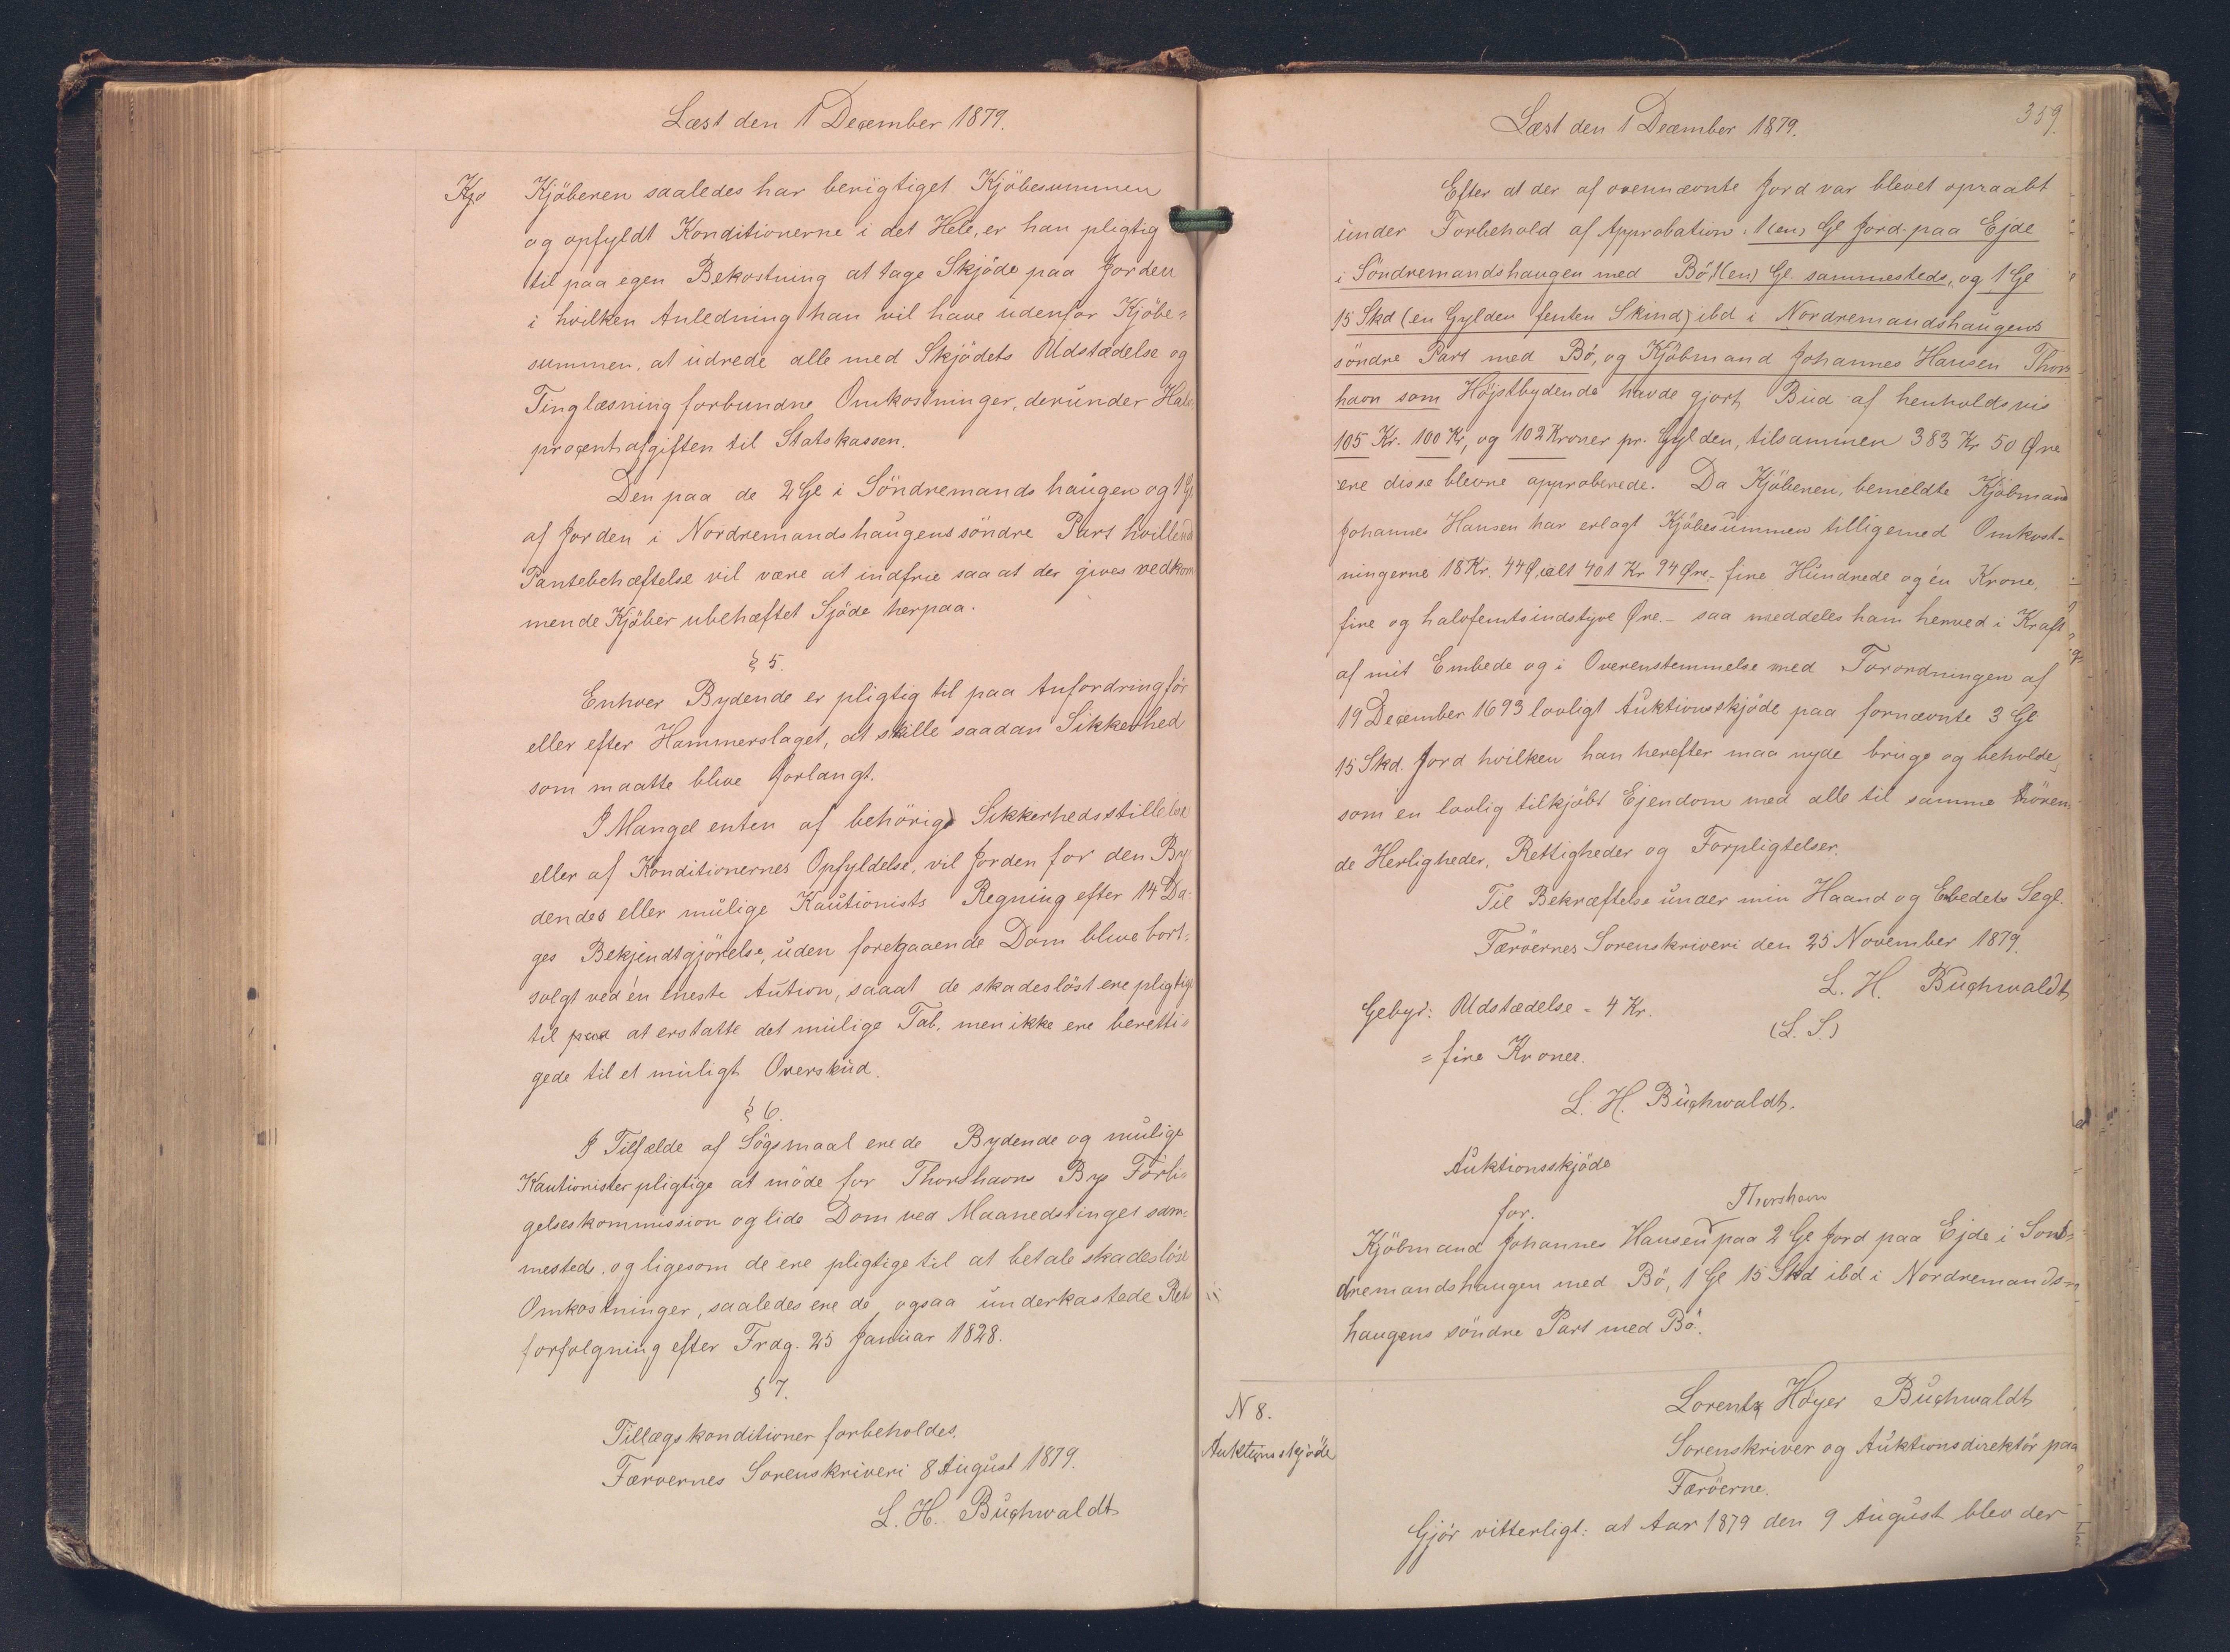 Læst den 1 December 1879.
Kjö Kjöberen saaledes har berigtiget Kjöbesummen
og opfyldt Konditionerne i det Hele, er han pligtig
til paa egen Bekostning at tage Skjöde paa Jorden
i hvilken Anledning han vil have udenfor Kjöbe-
summen, at udrede alle med Skjödets Udstædelse og
Tinglæsning forbundne Omkostninger, derunder Halv
procentafgiften til Statskassen.
Den paa de 2 Gl i Söndremandshaugen og 1 Gl
af Jorden i Nordremandshaugens söndre Part hvilende
Pantebehæftelse vil være at indfrie saa at der gives vedkom
mende Kjöber ubehæftet Sjöde herpaa.
§ 5.
Enhver Bydende er pligtig til paa Anfordring för
eller efter Hammerslaget, at stille saadan Sikkerhed
som maatte blive forlangt.
I Mangel enten af behörig Sikkerhedsstillelse
eller af Konditionernes Opfyldelse, vil Jorden for den By
dendes eller mulige Kautionists Regning efter 14 Da-
ges Bekjendtgjörelse, uden foregaaende Dom blive bort-
solgt ved én eneste Aution, saaat de skadeslöst ere pligtige
til paa at erstatte det mulige Tab, men ikke ere beretti-
gede til et muligt Overskud.
§ 6.
I Tilfælde af Sögsmaal ere de Bydende og mulige
Kautionister pligtige at möde for Thorshavns Bys Forli-
gelseskommission og lide Dom ved Maanedstinget sam-
mesteds, og ligesom de ere pligtige til at betale skadeslöse
Omkostninger, saaledes ere de ogsaa underkastede Ret
forfolgning efter Frdg. 25 Januar 1828.
§ 7.
Tillægskonditioner forbeholdes.
Færoernes Sorenskriveri 8 August 1879.
L. H. Buchwaldt
Læst den 1 December 1879.
359.
Efter at der af ovennævnte Jord var blevet opraabt
under Forbehold af Approbation: 1 (en) Gl Jord paa Ejde
i Söndremandshaugen med Bö, 1 (en) Gl. sammesteds, og 1 Gl
15 Skd (en Gylden femten Skind) ibd i Nordremandshaugens
söndre Part med Bö, og Kjöbmand Johannes Hansen Thors
havn som Höjstbydende havde gjort Bud af henholdsvis
105 Kr. 100 Kr, og 102 Kroner pr. Gylden, tilsammen 383 Kr 50 Øre
ere disse blevne approberede. Da Kjöberen, bemeldte Kjöbmand
Johannes Hansen har erlagt Kjöbesummen tilligemed Omkost-
ningerne 18 Kr. 44 Ø, ialt 401 Kr 94 Øre - fire Hundrede og én Krone,
fire og halvfemtsindstyve Øre. - saa meddeles ham herved i Kraft
af mit Embede og i Overenstemmelse med Forordningen af
19 December 1693 lovligt Auktionsskjöde paa fornævnte 3 Gl
15 Skd. Jord hvilken han herefter maa nyde bruge og beholde
som en lovlig tilkjöbt Ejendom med alle til samme hören-
de Herligheder, Rettigheder og Forpligtelser.
Til Bekræftelse under min Haand og Ebedets Segl.
Færöernes Sorenskriveri den 25 November 1879.
L. H. Buchwaldt
Gebyr: Udstædelse - 4 Kr.
(L. S.)
= fire Kroner.
L. H. Buchwaldt.
Auktionsskjöde
for.
Thorshavn
Kjöbmand Johannes Hansen paa 2 Gl Jord paa Ejde i Sön-
dremandshaugen med Bö, 1 Gl 15 Skd ibd i Nordremands-
haugens söndre Part med Bö.
N 8.
Auktionsskjöde
Lorentz Höyer Buchwaldt
Sorenskriver og Auktionsdirektör paa
Færöerne.
Gjör vitterligt: at Aar 1879 den 9 August blev der